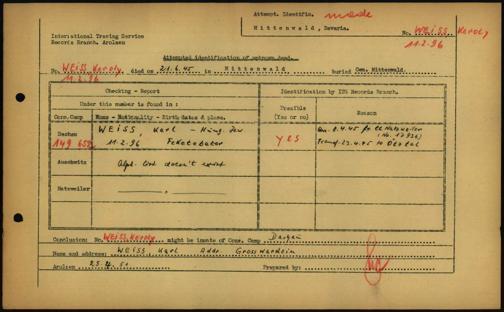 Attempt. Identific. made
Mittenwald, Bavaria.
International Tracing Service
Records Branch. Arolsen
No. WEISS Karoly
11.2.96
Attempted identification of unknown dead.
No. WEISS Karoly, died on 21.6.45 in Mittenwald Buried Cem. Mittenwald.
11.2.96
Checking - Report
Identification by ITS Records Branch.
Under this number is found in:
Possible
(Yes or no)
Reason
Conc.Camp
Name - Nationality - Birth dates & place.
Dachau
149 655
WEISS, Karl - Hung. Jew
11.2.96 Feketebator
yes
8.4.45 fr. CC Natzweiler
Transf. 23.4.45 to Oetztal
Auschwitz
Alph. list doesn't exist
Natzweiler
Conclusion: No. WEISS Karoly might be inmate of Conc. Camp Dachau
Name and address: WEISS Karl Grosswardein
Arolsen 25.4.50 Prepared by: